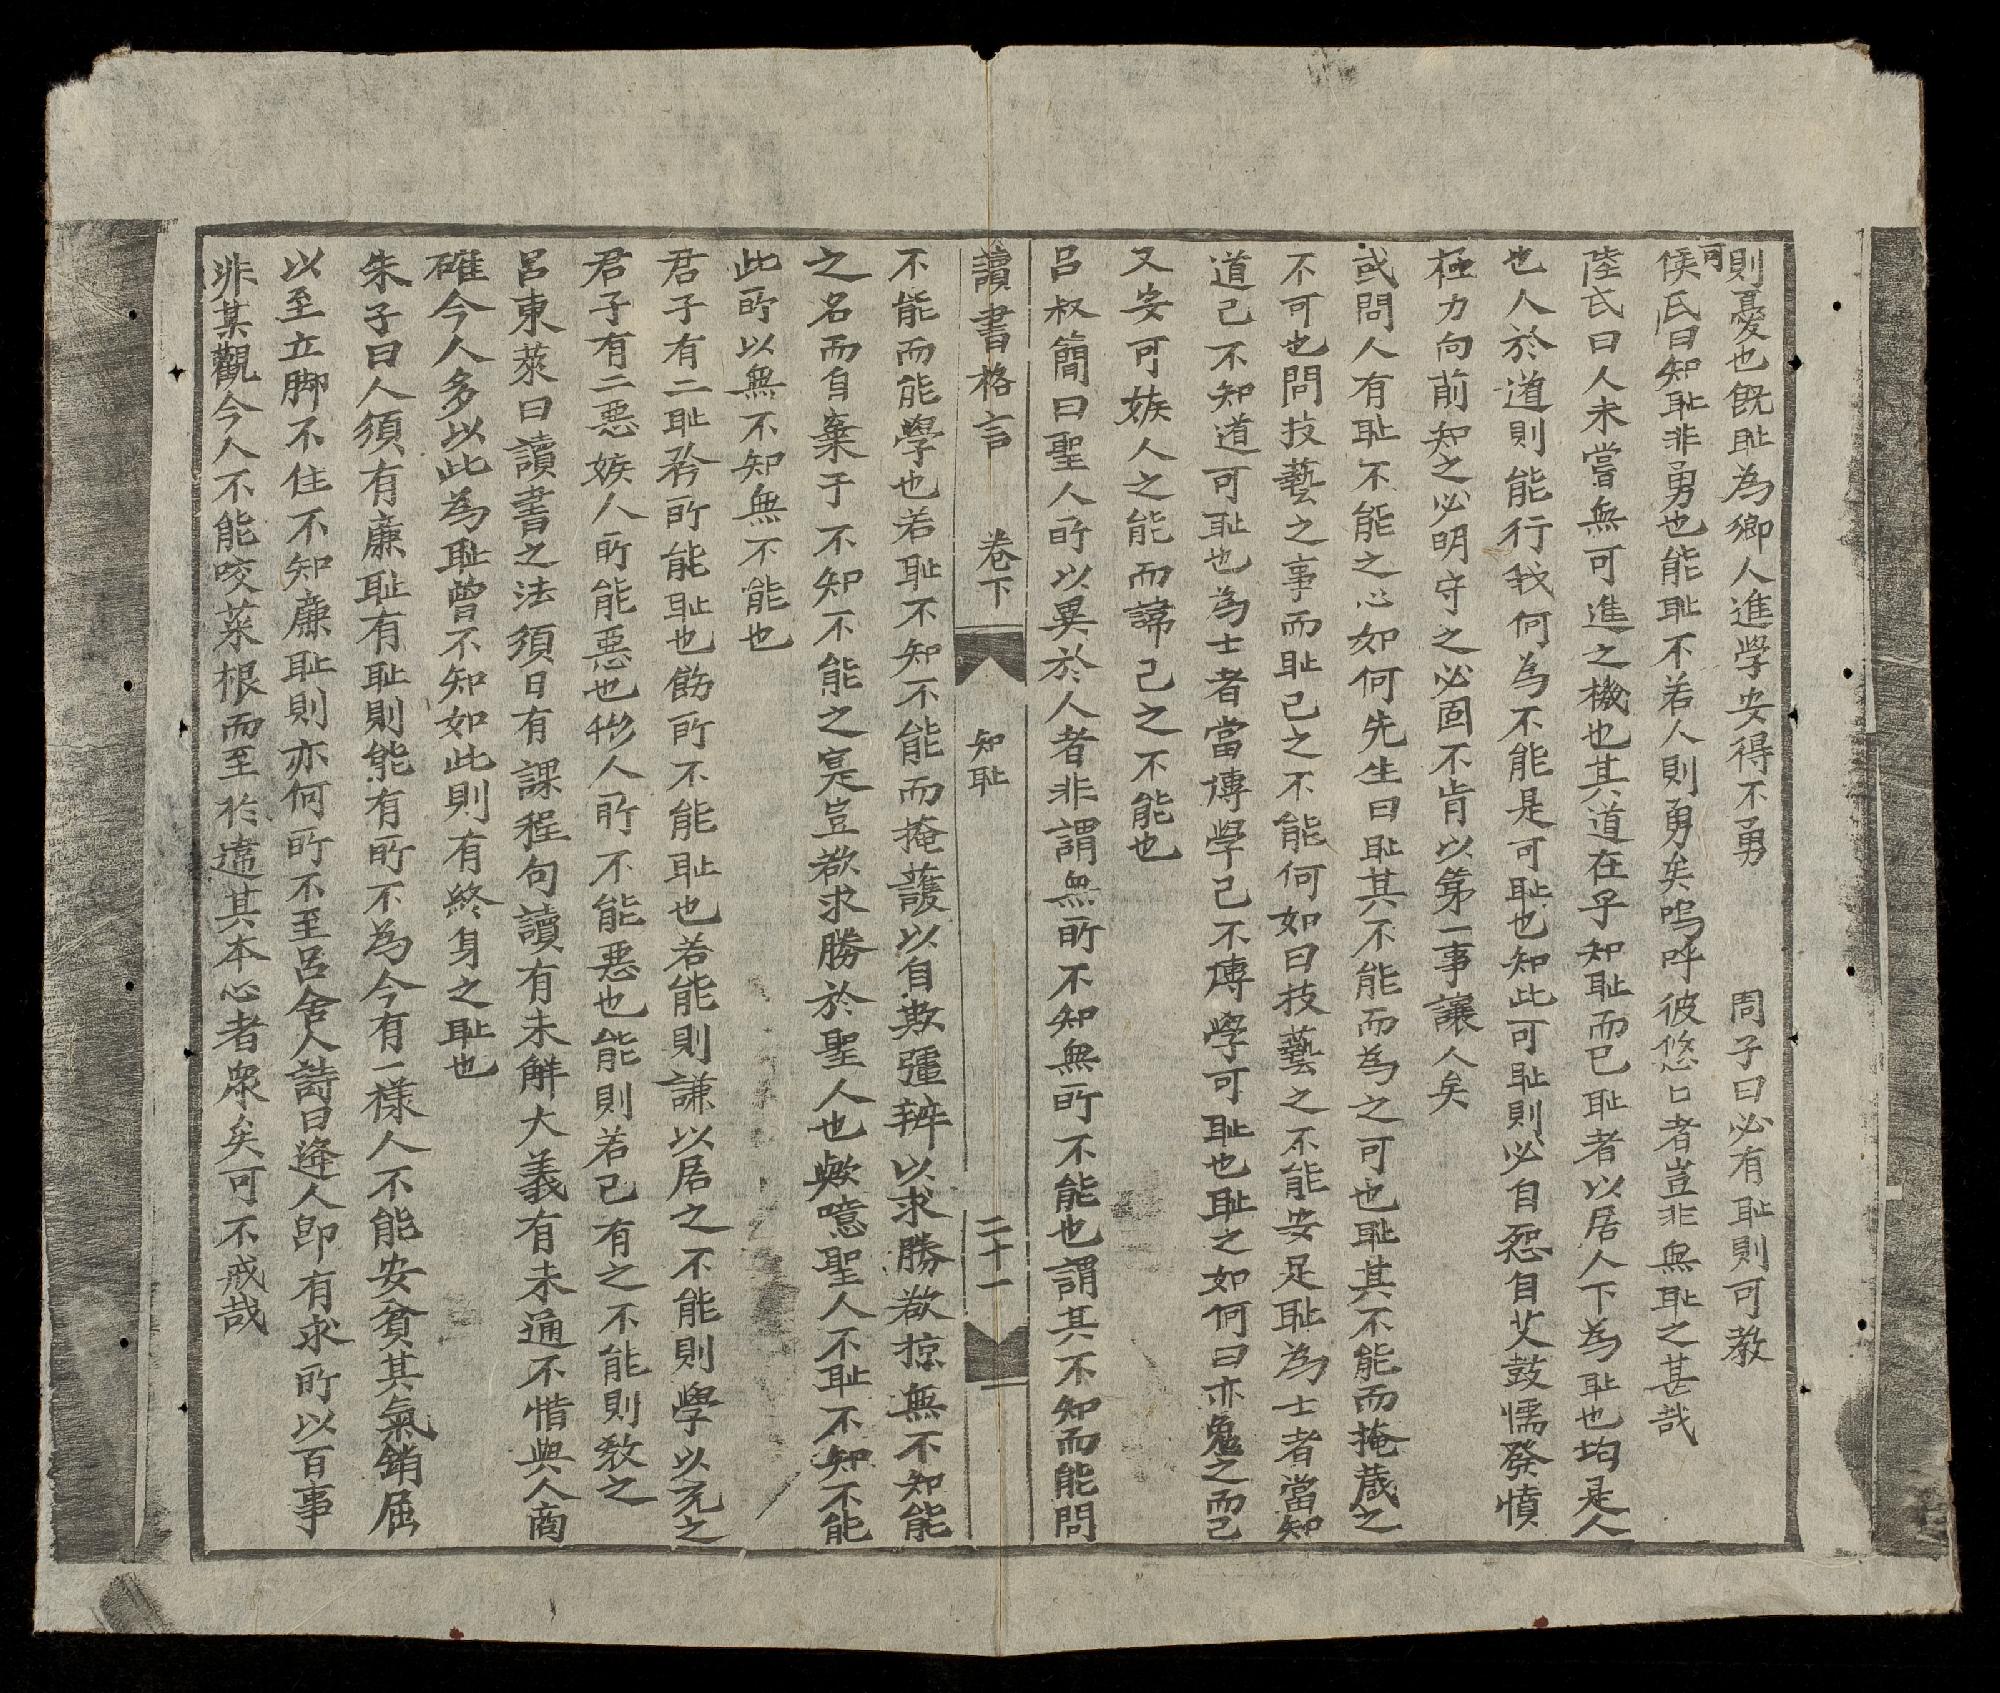 則憂也既耻為鄉人進學安得不勇　周子曰必有耻則可教
侯氏曰知耻非勇也能耻不若人則勇矣嗚呼彼悠〻者豈非無耻之甚哉
陸氏曰人未嘗無可進之機也其道在乎知耻而已耻者以居人下為耻也均是人
也人於道則能行我何為不能是可耻也知此可耻則必自怨自艾鼓懦發憤
極力向前知之必明守之必固不肯以第一事讓人矣
或問人有耻不能之心如何先生曰耻其不能而為之可也耻其不能而掩藏之
不可也問技藝之事而耻己之不能何如曰技藝之不能安足耻為士者當知
道己不知道可耻也為士者當博學己不博學可耻也耻之如何曰亦勉之而已
又安可嫉人之能而諱己之不能也
呂叔簡曰聖人所以異於人者非謂無所不知無所不能也謂其不知而能問
讀書格言　卷下　知耻　二十一
不能而能學也若耻不知不能而掩護以自欺强辨以求勝欲掠無不知能
之名而自棄于不知不能之寔豈欲求勝於聖人也歟噫聖人不耻不知不能
此所以無不知無不能也
君子有二耻矜所能耻也飭所不能耻也若能則謙以居之不能則學以充之
君子有二惡嫉人所能惡也形人所不能惡也能則若己有之不能則教之
呂東萊曰讀書之法須日有課程句讀有未解大義有未通不惜與人商
確今人多以此為耻曾不知如此則有終身之耻也
朱子曰人須有廉耻有耻則能有所不為今有一樣人不能安貧其氣銷屈
以至立脚不住不知廉耻則亦何所不至呂舍人詩曰逢人卽有求所以百事
非某觀今人不能咬菜根而至於違其本心者衆矣可不戒哉